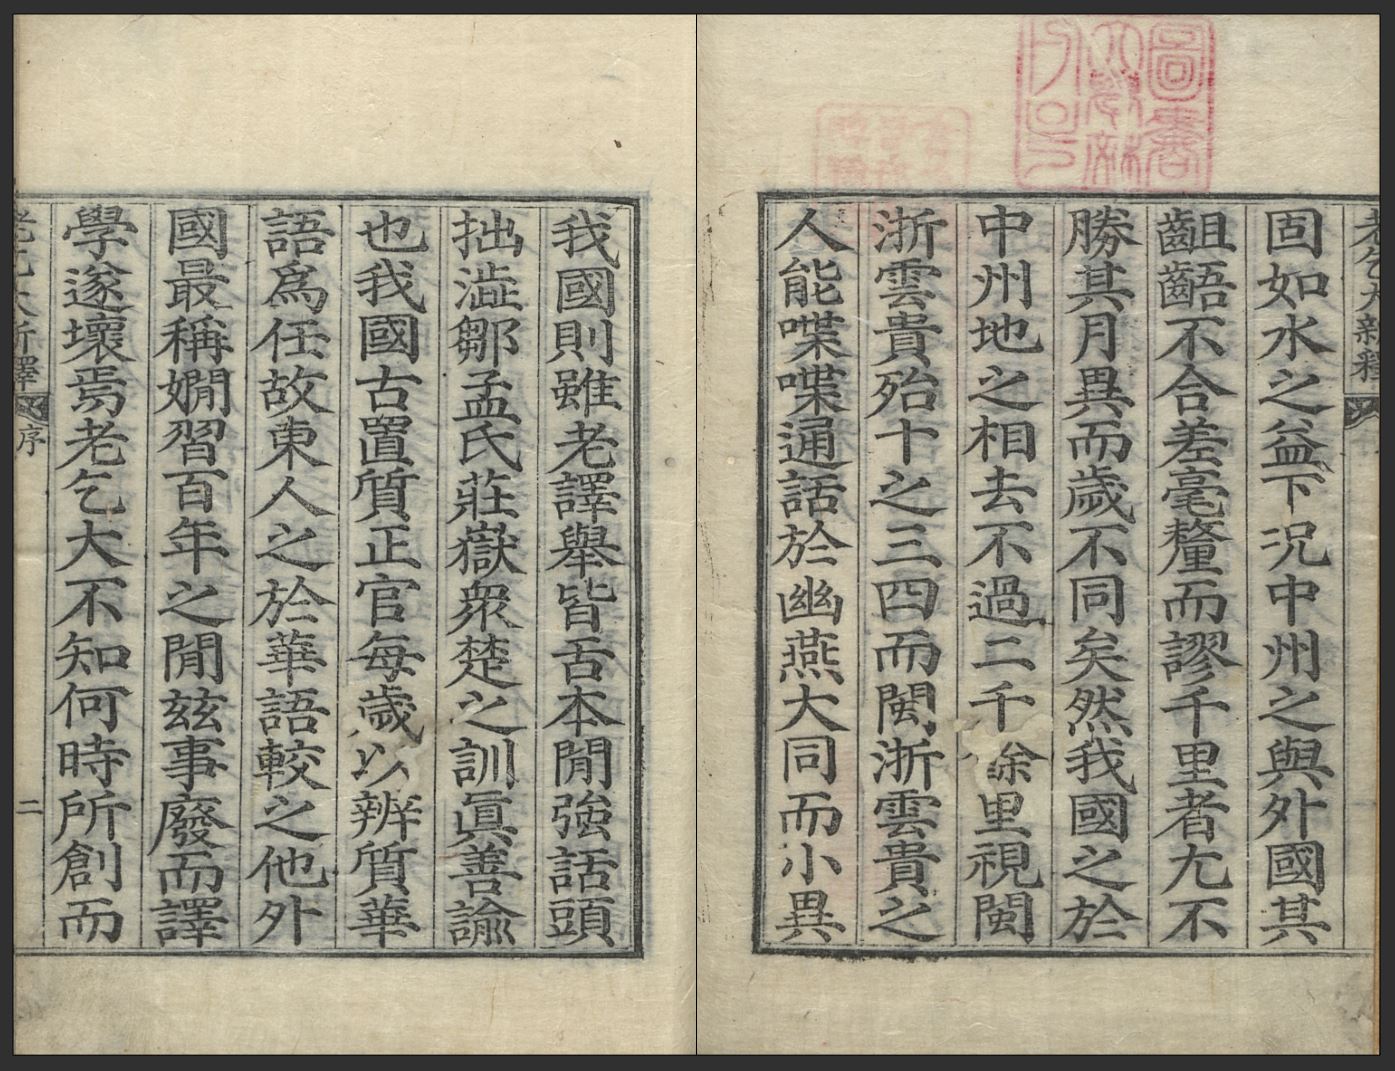 固如水之益下況中州之與外國其
齟齬不合差毫釐而謬千里者尤不
勝其月異而歲不同矣然我國之於
中州地之相去不過二千餘里視閩
浙雲貴殆十之三四而閩浙雲貴之
人能喋喋通話於幽燕大同而小異
我國則雖老譯舉皆舌本閒強話頭
拙澁鄒孟氏莊嶽衆楚之訓眞善諭
也我國古置質正官每歲以辨質華
語爲任故東人之於華語較之他外
國最稱嫺習百年之閒玆事廢而譯
學遂壞焉老乞大不知何時所創而
老乞大新釋
序
二
圖書